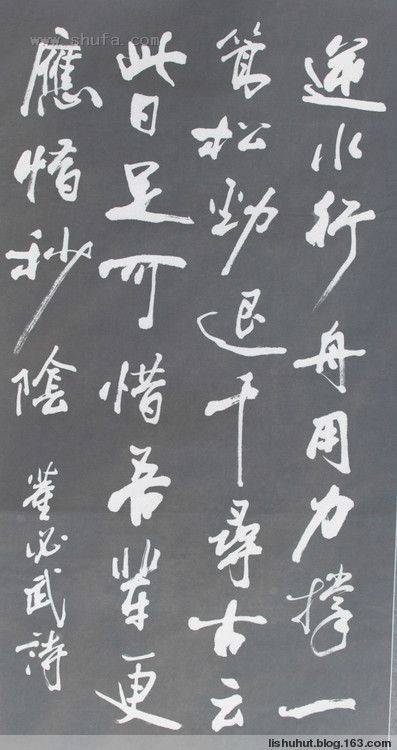 逆水行舟用力撐一
篙松勁退千尋古云
此日足可惜吾輩更
應惜秒陰
董必武詩
www.shufa.com
lishuhut.blog.163.com